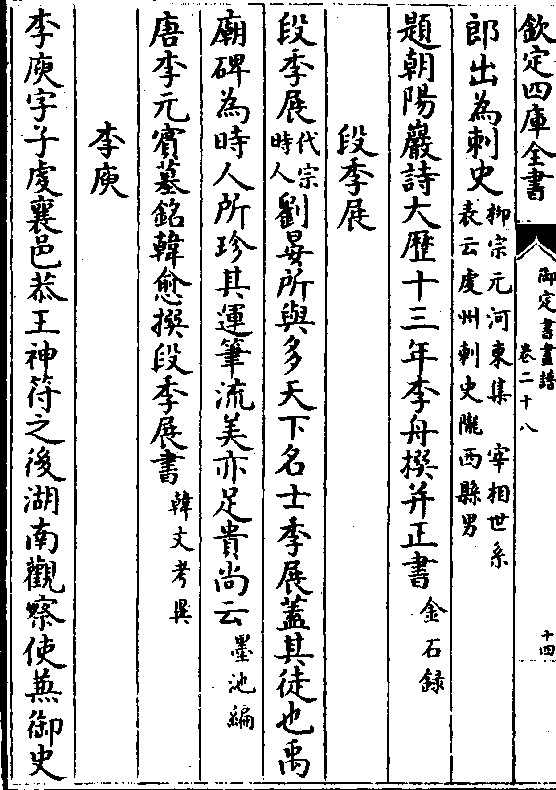 欽定四庫全書
御定書畫譜
卷二十八
十四
郎出為刺史柳宗元河東集 宰相世系
表云虔州刺史隴西縣男
題朝陽巖詩大歷十三年李舟撰并正書金石録
段季展
段季展代宗
時人劉晏所與多天下名士季展蓋其徒也禹
廟碑為時人所珍其運筆流美亦足貴尚云墨池編
唐李元賓墓銘韓愈撰段季展書韓文考異
李庾
李庾字子虔襄邑恭王神符之後湖南觀察使兼御史